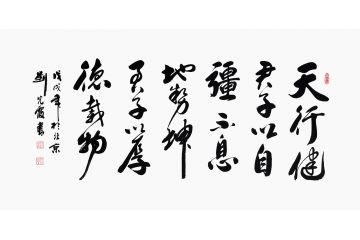 天行健
君子以自
彊不息
地势坤
君子以厚
德載物
戊戌年於北京